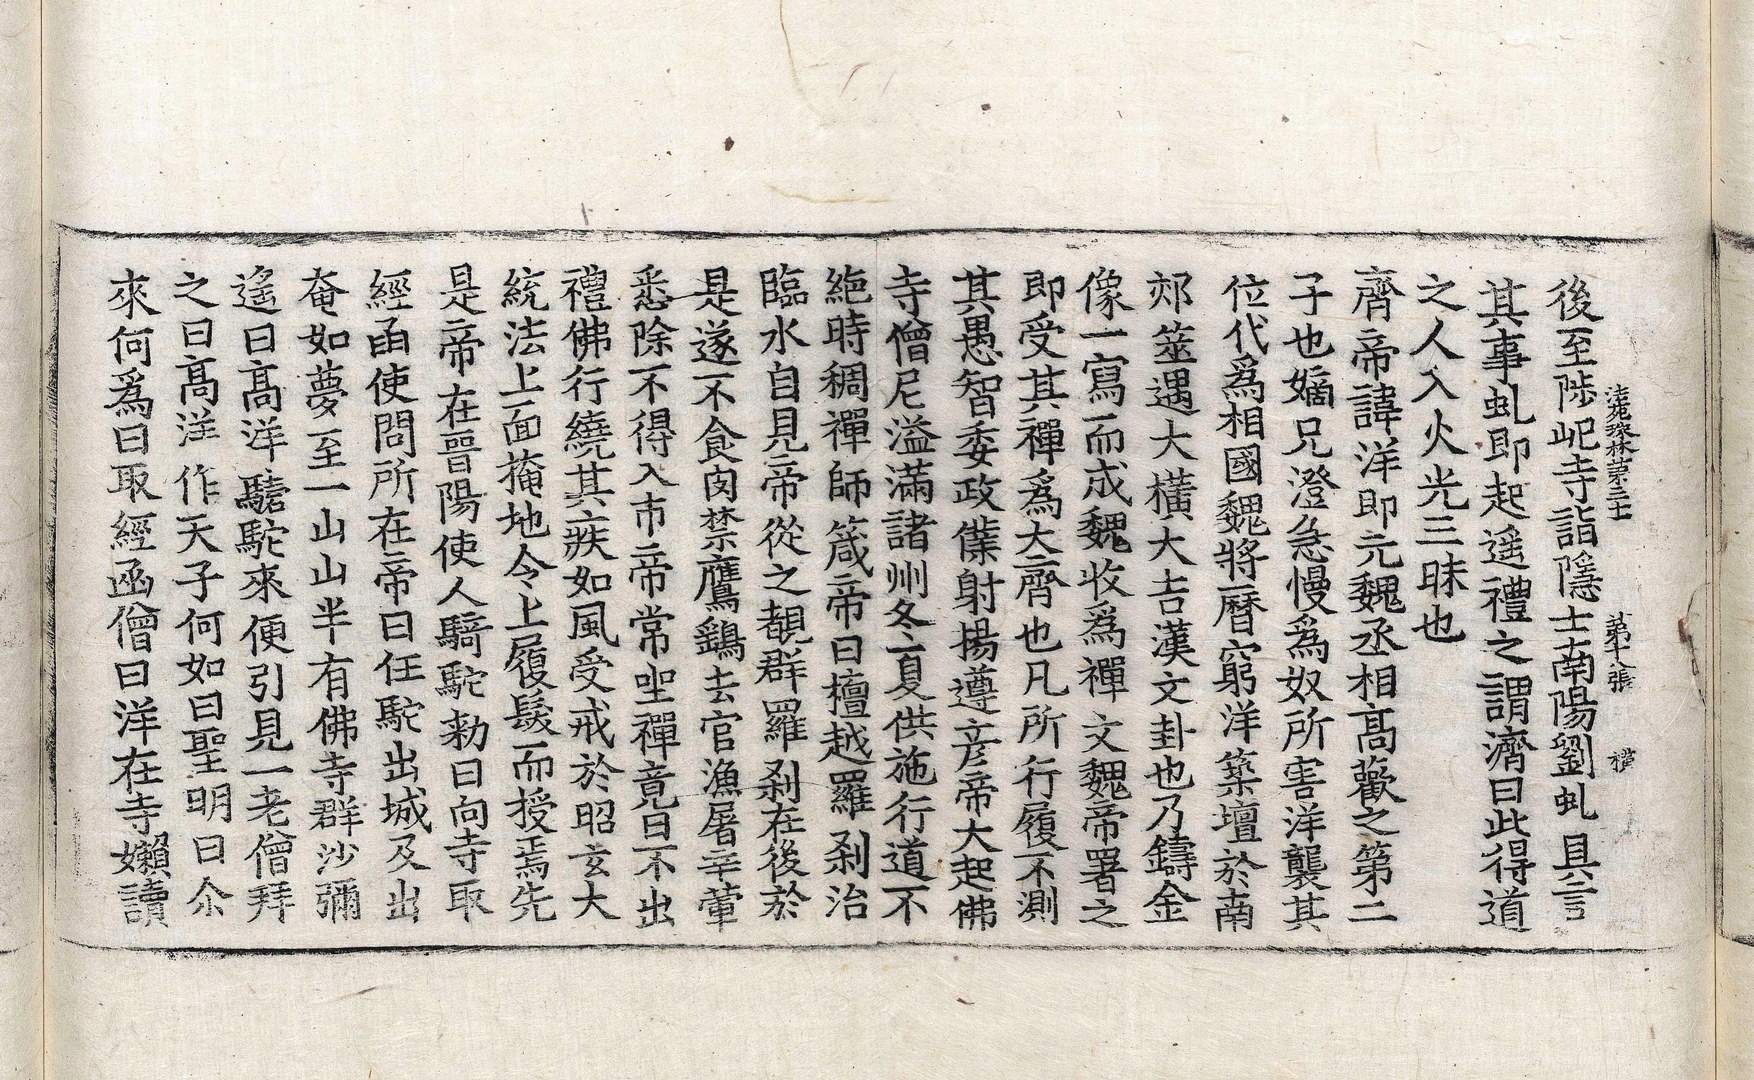 法苑珠林第三十一 第十八張 橫
後至陟屺寺詣隱士南陽劉虬具言
其事虬即起遥禮之謂濟曰此得道
之人入火光三昧也
齊帝諱洋即元魏丞相高歡之第二
子也嫡兄澄急慢爲奴所害洋襲其
位代爲相國魏將曆窮洋築壇於南
郊筮遇大橫大吉漢文卦也乃鑄金
像一寫而成魏收爲禪文魏帝署之
即受其禪爲大齊也凡所行履不測
其愚智委政僕射揚遵彦帝大起佛
寺僧尼溢滿諸州冬夏供施行道不
絶時稠禪師箴帝曰檀越羅刹治
臨水自見帝從之覩群羅刹在後於
是遂不食肉禁鷹鷂去官漁屠辛葷
悉除不得入市帝常坐禪竟日不出
禮佛行繞其疾如風受戒於昭玄大
統法上面掩地令上履髮而授焉先
是帝在晉陽使人騎駝勑曰向寺取
經函使問所在帝曰任駝出城及出
奄如夢至一山山半有佛寺群沙彌
遥曰高洋驢駝來便引見一老僧拜
之曰高洋作天子何如曰聖明曰尒
來何爲曰取經函僧曰洋在寺嬾讀